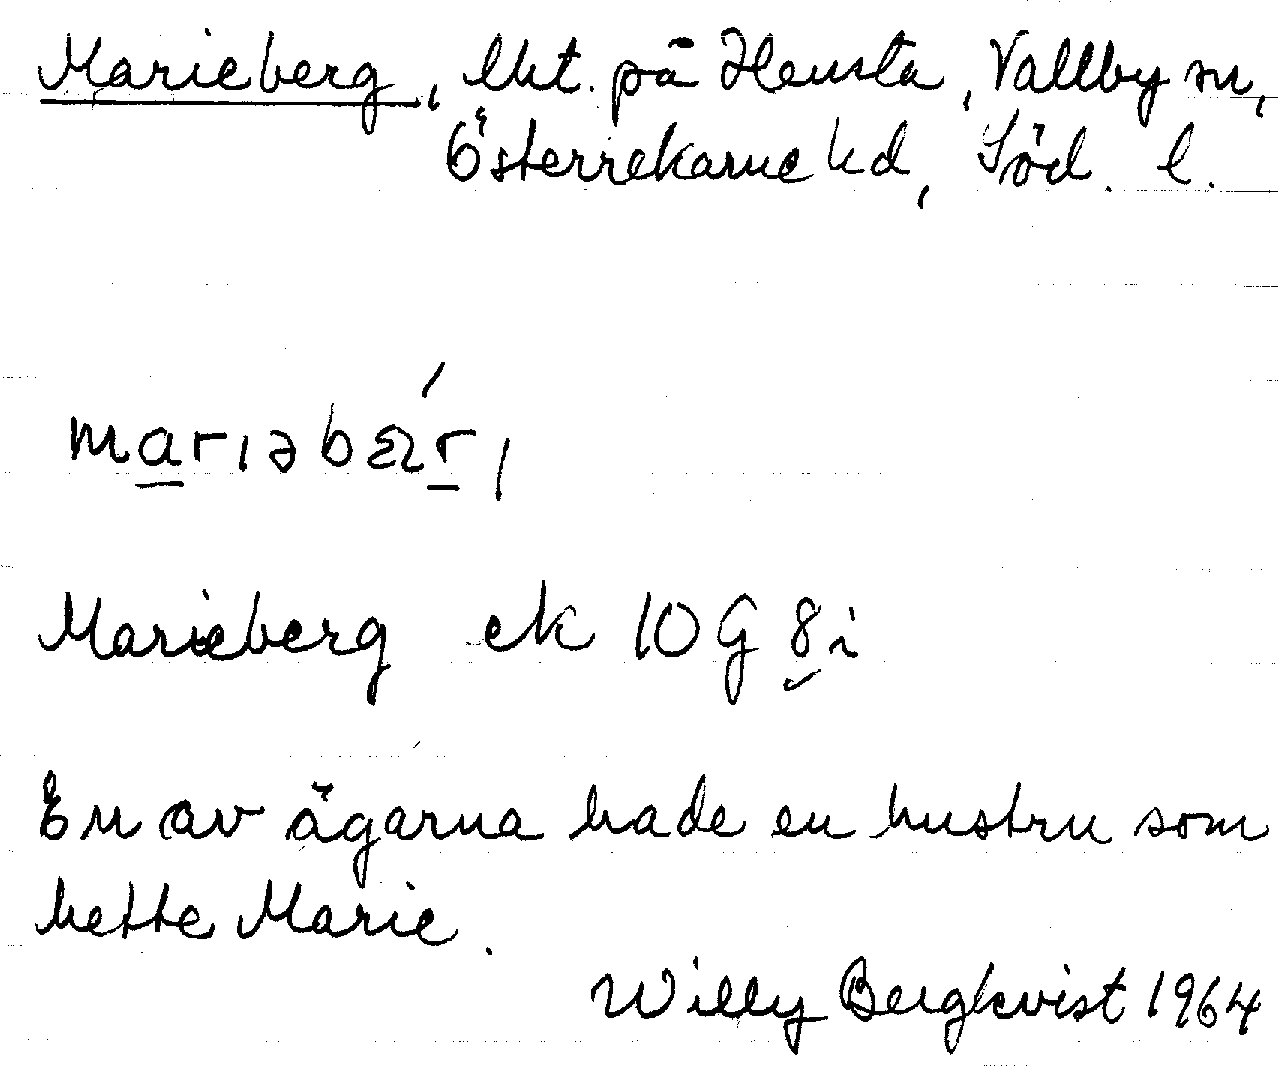 Marieberg, lht. på Hensta, Vallby sn,
Österrekarne hd, Söd. l.
marıəbær,
Marieberg ek 10 G 8 i
En av ägarna hade en hustru som
hette Marie.
Willy Bergkvist 1964